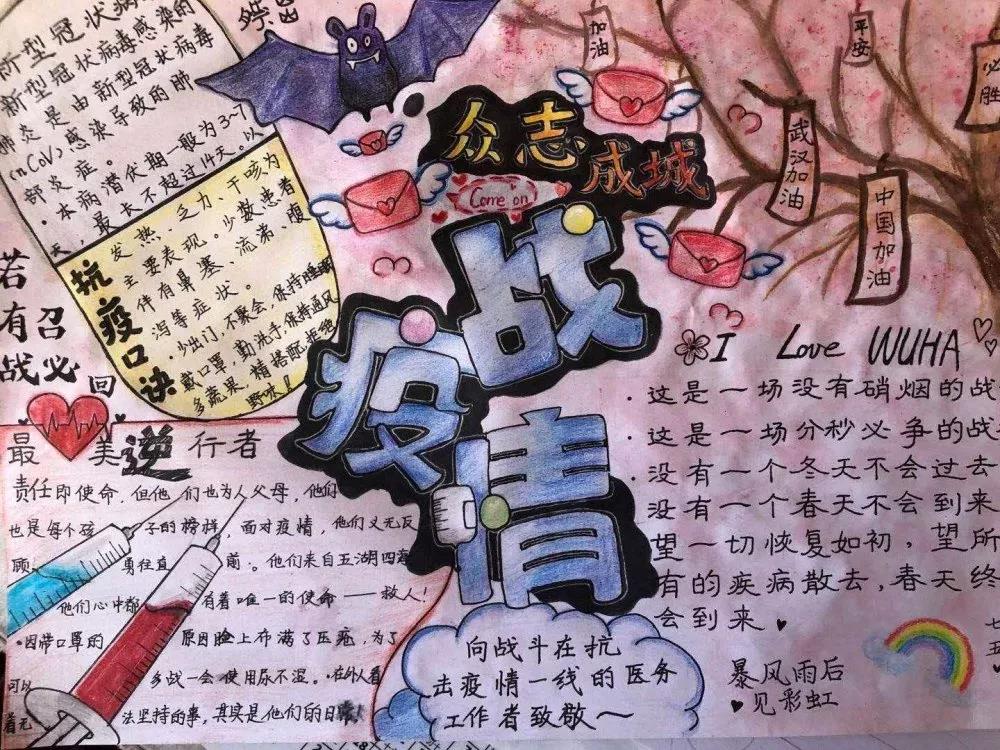 新型冠状病
新型冠状病毒感染的
肺炎是由新型冠状病毒
(nCoV)感染导致的肺
部炎症。
·本病潜伏期一般为3~7
天,最长不超过14天。以
发热、乏力、干咳为
主要表现。少数患者
伴有鼻塞、流涕、腹
泻等症状。
抗疫口诀
·少出门,不聚会,保持睡眠
戴口罩,勤洗手,保持通风
多蔬果,精搭配,拒绝
野味!
众志成城
Come on
战疫情
加油
平安
必胜
武汉加油
中国加油
若有召
战必回
最美逆行者
责任即使命,但他们也为人父母,他们
也是每个孩子的榜样,面对疫情,他们义无反
顾,勇往直前。他们来自五湖四海
他们心中都有着唯一的使命——救人!
·因带口罩的原因脸上布满了压疮,为了
可以多战一会使用尿不湿。在外人看
着无法坚持的事,其实是他们的日常!
向战斗在抗
击疫情一线的医务
工作者致敬~
I Love WUHA
·这是一场没有硝烟的战
·这是一场分秒必争的战
·没有一个冬天不会过去
没有一个春天不会到来
望一切恢复如初,望所
有的疾病散去,春天终
会到来
暴风雨后
见彩虹